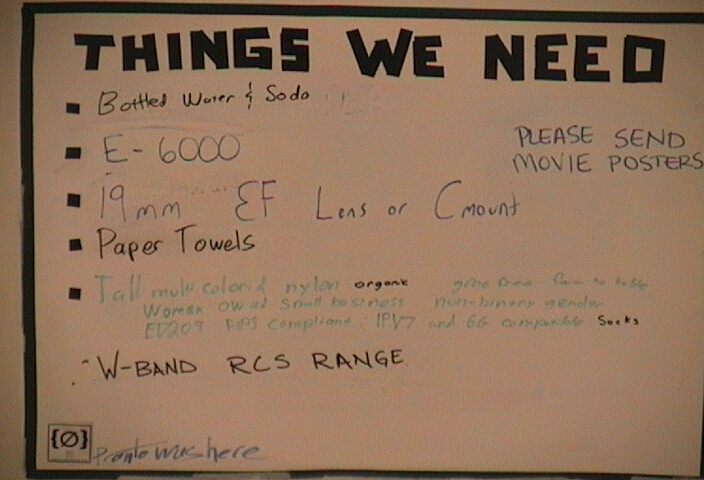 THINGS WE NEED
Bottled Water & Soda
E-6000
PLEASE SEND
MOVIE POSTERS
19mm EF Lens or C mount
Paper Towels
Tall multi colored nylon organic gmo free farm to table
Women owned small business non-binary gender
ED209 FIPS compliant IPV7 and 6G compatible Socks
W-BAND RCS RANGE
{Ø}
Pronto was here